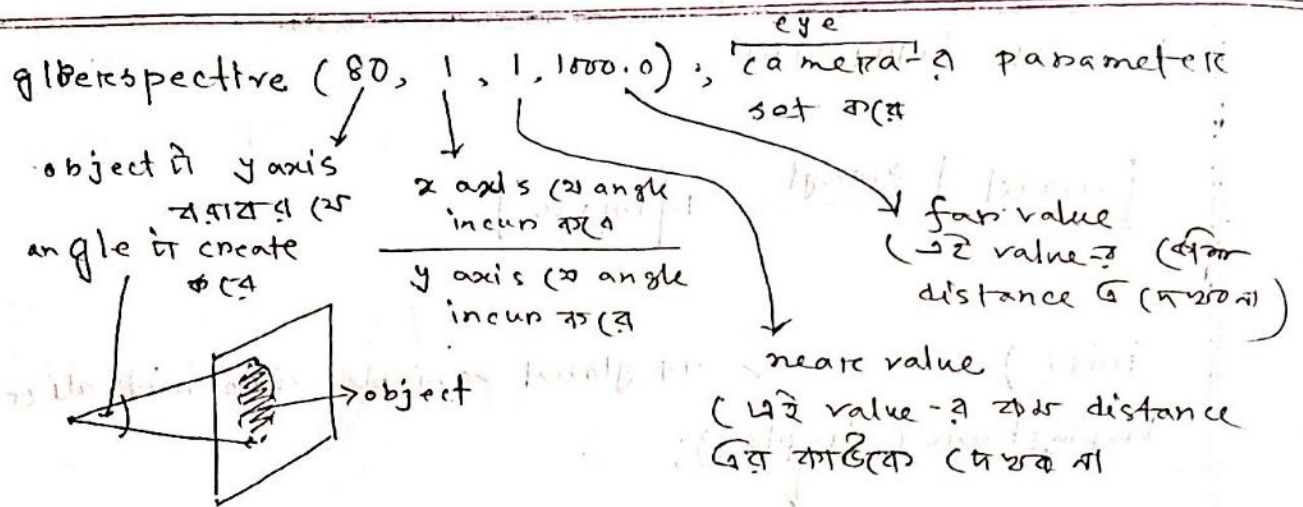 eye
gluperspective (80, 1, 1, 1000.0); camera-র parameter
set করে
object টা y axis
বরাবর যে
angle টা create
করে
x axis যে angle
incur করে
y axis যে angle
incur করে
far value
(এই value-র বেশি
distance এ দেখবে না)
near value
(এই value-র কম distance
এর কাউকে দেখব না
object